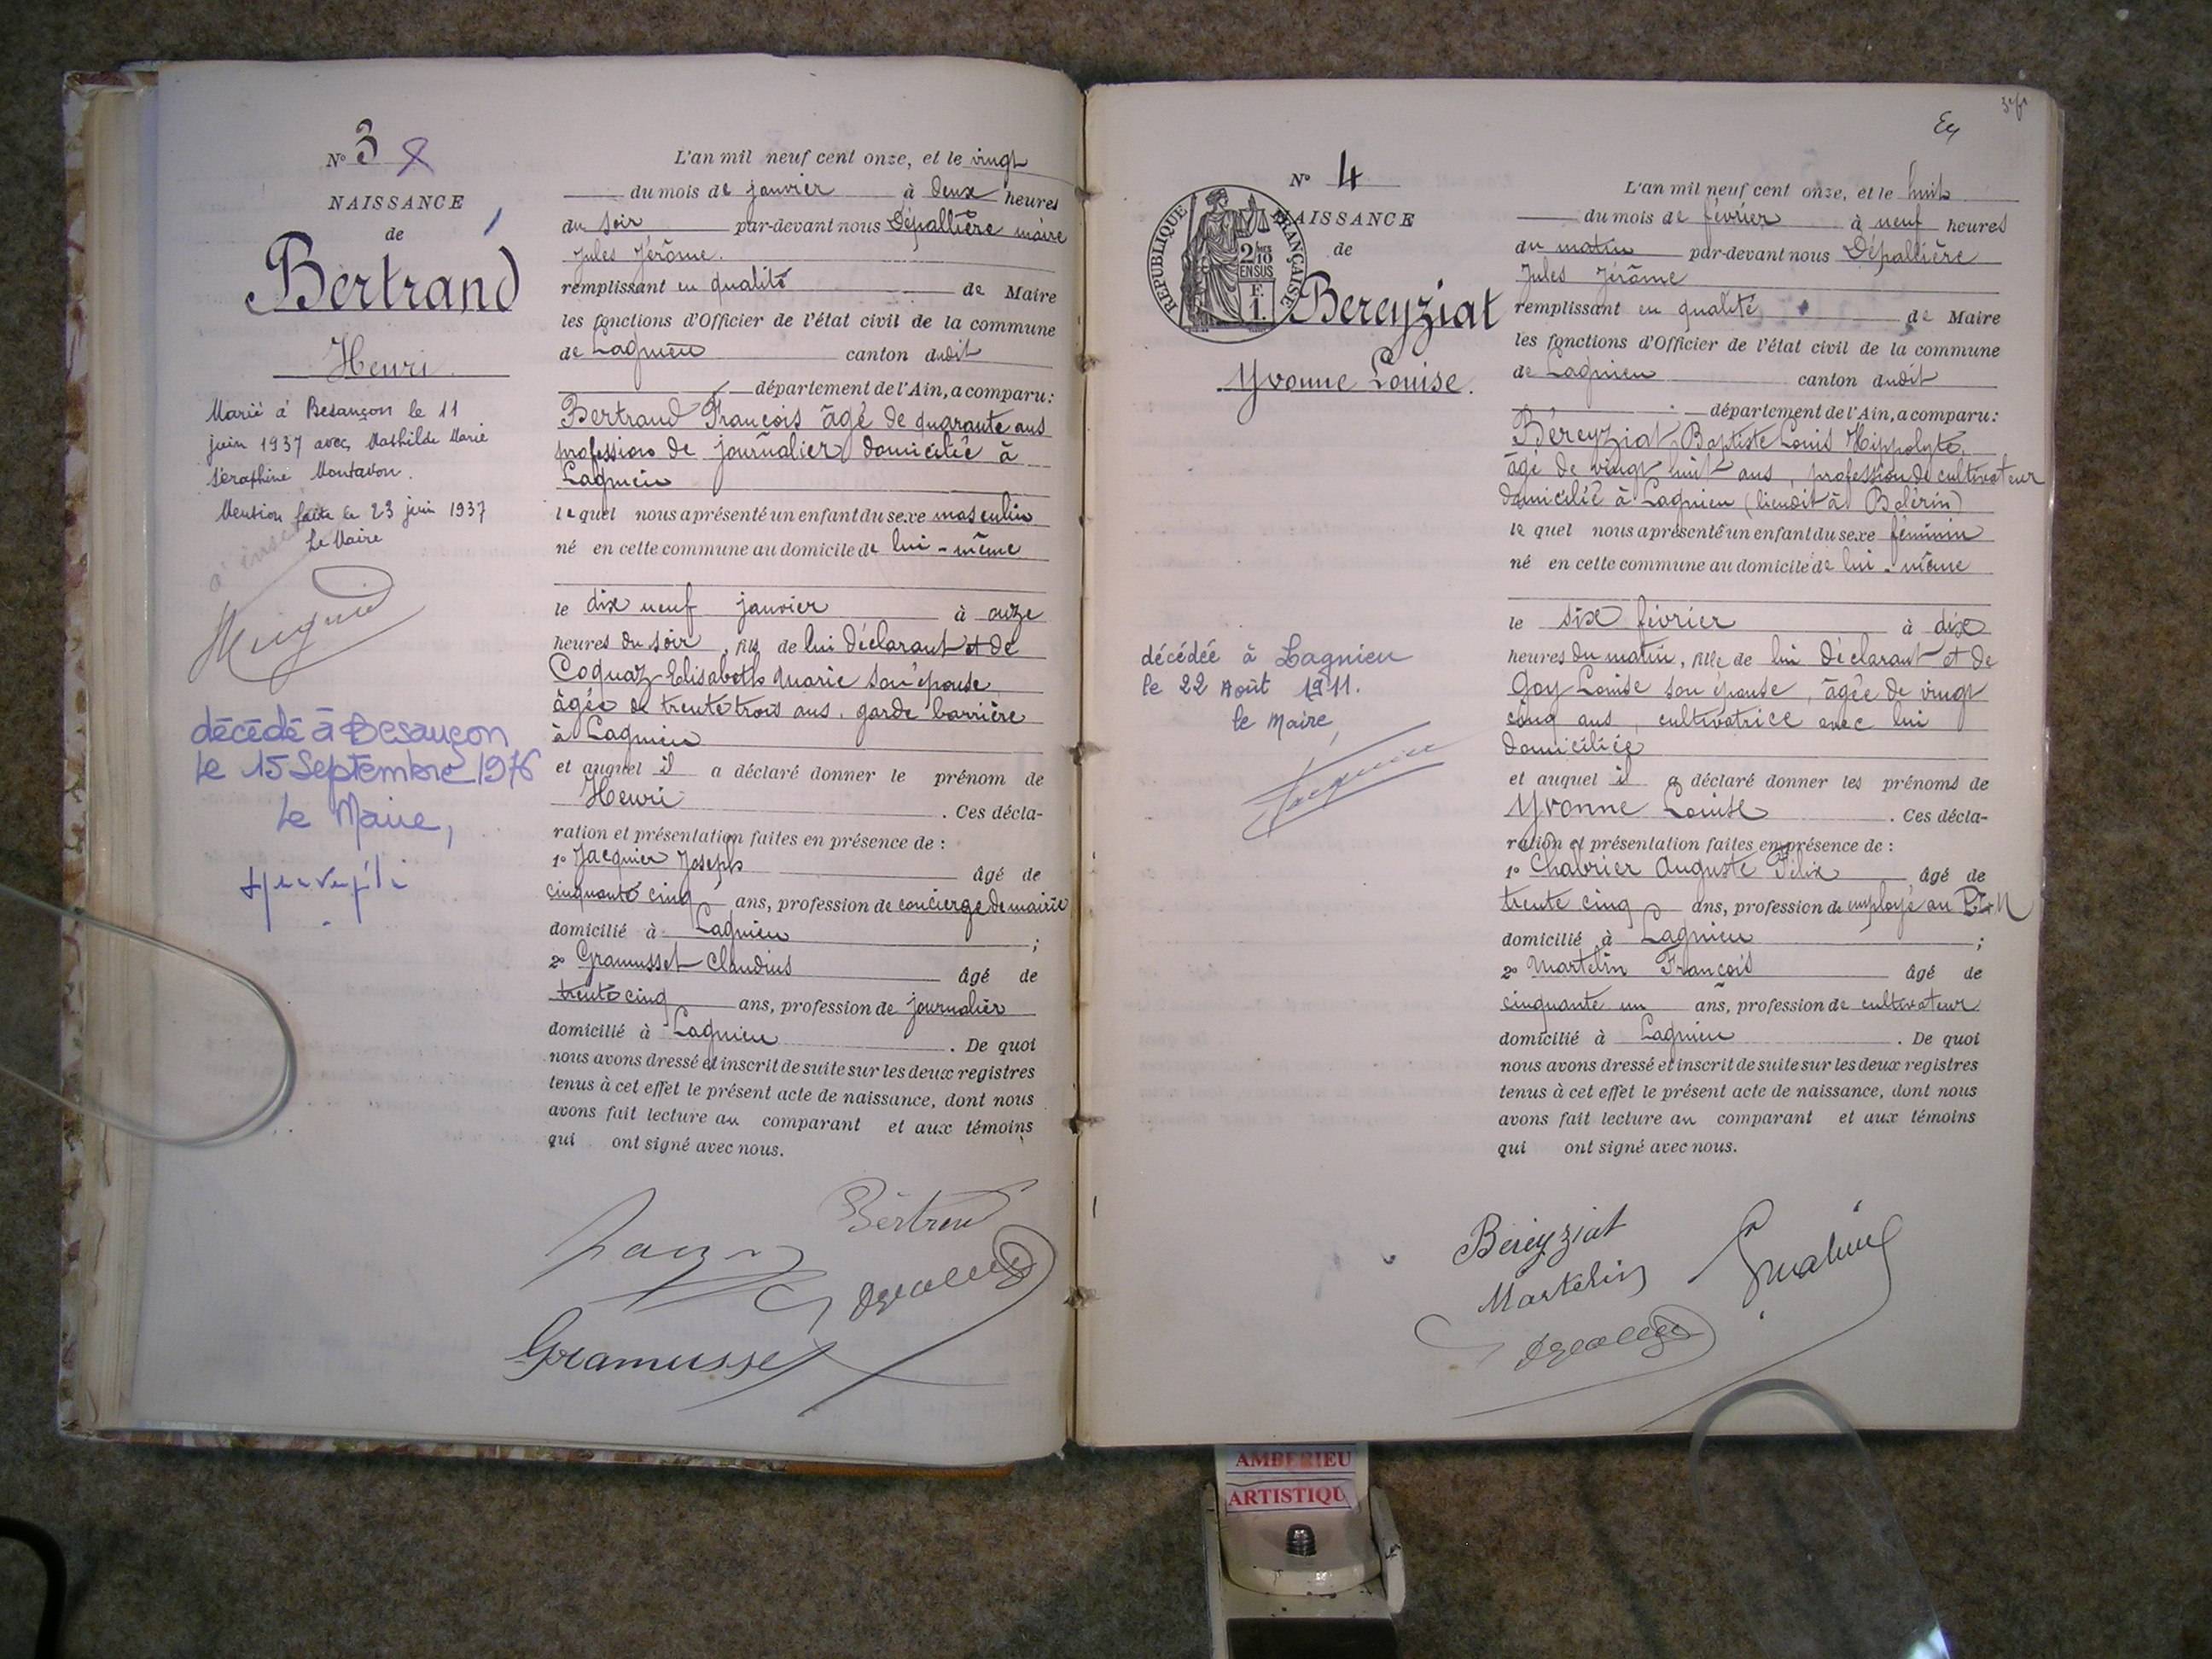 N° 3
NAISSANCE
de
Bertrand
Henri
Marié à Besançon le 11
juin 1937 avec Mathilde Marie
Séraphine Montavon.
Mention faite le 23 juin 1937
Le Maire
décédé à Besançon
le 15 Septembre 1976
Le Maire,
L'an mil neuf cent onze, et le vingt
du mois de janvier à deux heures
du soir par-devant nous Dépallière maire
Jules Jérôme.
remplissant en qualité de Maire
les fonctions d'Officier de l'état civil de la commune
de Lagnieu canton dudit
département de l'Ain, a comparu:
Bertrand François âgé de quarante ans
profession de journalier domicilié à
Lagnieu
lequel nous a présenté un enfant du sexe masculin
né en cette commune au domicile de lui-même
le dix neuf janvier à onze
heures du soir, fils de lui déclarant et de
Coquaz Elisabeth Marie son épouse
âgée de trente trois ans, garde barrière
à Lagnieu
et auquel il a déclaré donner le prénom de
Henri . Ces décla-
ration et présentation faites en présence de :
1° Jacquier Joseph âgé de
cinquante cinq ans, profession de concierge de mairie
domicilié à Lagnieu ;
2° Gramusset Claudius âgé de
trente cinq ans, profession de journalier
domicilié à Lagnieu . De quoi
nous avons dressé et inscrit de suite sur les deux registres
tenus à cet effet le présent acte de naissance, dont nous
avons fait lecture au comparant et aux témoins
qui ont signé avec nous.
Bertrand
Gramusset
N° 4
NAISSANCE
de
RÉPUBLIQUE FRANÇAISE
2/10
EN SUS
F.
1.
Bereyziat
Yvonne Louise.
décédée à Lagnieu
le 22 Août 1911.
le Maire,
L'an mil neuf cent onze, et le huit
du mois de février à neuf heures
du matin par-devant nous Dépallière
Jules Jérôme
remplissant en qualité de Maire
les fonctions d'Officier de l'état civil de la commune
de Lagnieu canton dudit
département de l'Ain, a comparu:
Béreyziat Baptiste Louis Hippolyte,
âgé de vingt huit ans, profession de cultivateur
domicilié à Lagnieu (lieudit à Bolérin)
lequel nous a présenté un enfant du sexe féminin
né en cette commune au domicile de lui-même
le six février à dix
heures du matin, fille de lui déclarant et de
Goy Louise son épouse, âgée de vingt
cinq ans, cultivatrice avec lui
domiciliée
et auquel il a déclaré donner les prénoms de
Yvonne Louise . Ces décla-
ration et présentation faites en présence de :
1° Chabrier Auguste Félix âgé de
trente cinq ans, profession de employé au P.L.M
domicilié à Lagnieu ;
2° Martelin François âgé de
cinquante un ans, profession de cultivateur
domicilié à Lagnieu . De quoi
nous avons dressé et inscrit de suite sur les deux registres
tenus à cet effet le présent acte de naissance, dont nous
avons fait lecture au comparant et aux témoins
qui ont signé avec nous.
Béreyziat
Martelin
AMBERIEU
ARTISTIQU